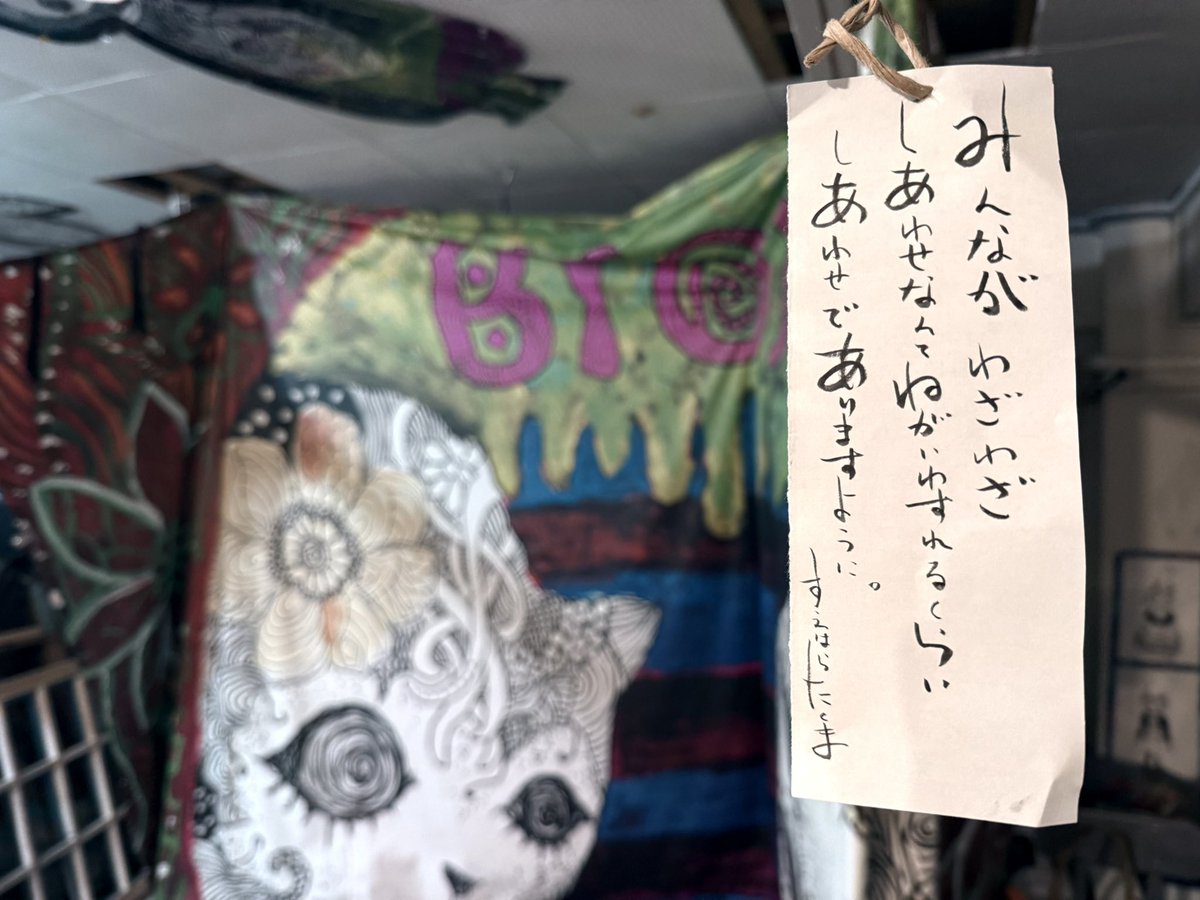 みんなが わざわざ
しあわせなんてねがいわすれるくらい
しあわせでありますように。
すえはらたくま